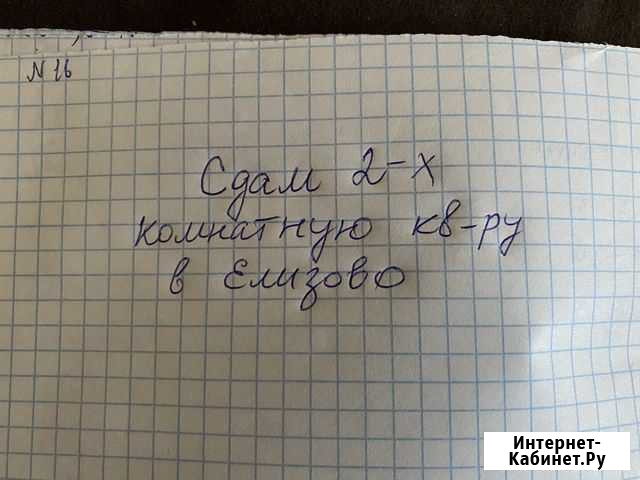 N 16
Сдам 2-х
комнатную кв-ру
в Елизово
Интернет-
Кабинет.Ру